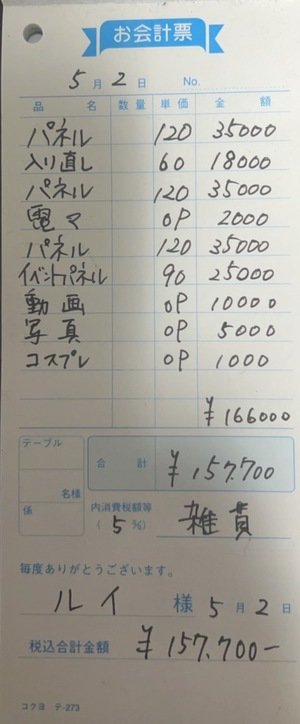 お会計票
5月2日 No.
品名 数量 単価 金額
パネル 120 35000
入り直し 60 18000
パネル 120 35000
電マ OP 2000
パネル 120 35000
イベントパネル 90 25000
動画 OP 10000
写真 OP 5000
コスプレ OP 1000
¥166000
テーブル
名様
係
合計 ¥157.700
内消費税額等
(5%) 雑貨
毎度ありがとうございます。
ルイ 様 5月2日
税込合計金額 ¥157.700−
コクヨ テ-273